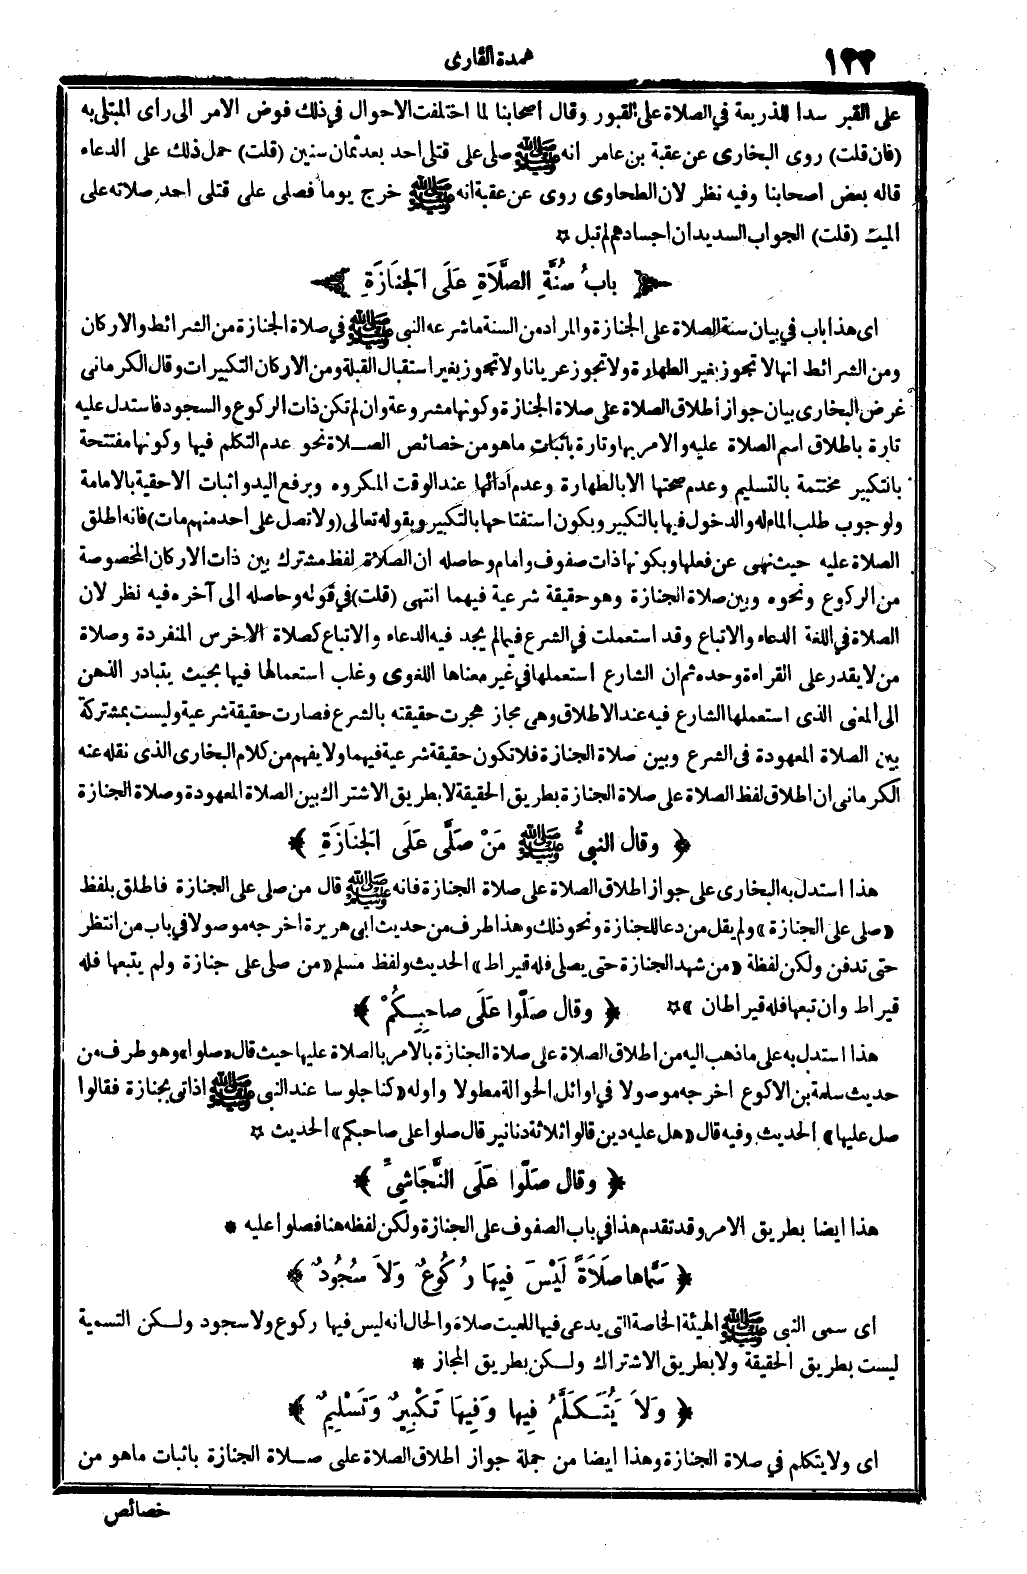 ١٢٢
عمدة القارى
على القبر سدا للذريعة في الصلاة على القبور وقال اصحابنا لما اختلفت الاحوال في ذلك فوض الامر الى رأى المبتلى به
(فان قلت) روى البخارى عن عقبة بن عامر انه ﷺ صلى على قتلى احد بعد ثمان سنين (قلت) حمل ذلك على الدعاء
قاله بعض اصحابنا وفيه نظر لان الطحاوى روى عن عقبة انه ﷺ خرج يوما فصلى على قتلى احد صلاته على
الميت (قلت) الجواب السديد ان اجسادهم لم تبل ☆
﴿ بابُ سُنَّةِ الصَّلَاةِ عَلَى الْجَنَازَةِ ﴾
اى هذا باب في بيان سنة الصلاة على الجنازة والمراد من السنة ما شرعه النبى ﷺ في صلاة الجنازة من الشرائط والاركان
ومن الشرائط انها لا تجوز بغير الطهارة ولا تجوز عريانا ولا تجوز بغير استقبال القبلة ومن الاركان التكبيرات وقال الكرمانى
غرض البخارى بيان جواز اطلاق الصلاة على صلاة الجنازة وكونها مشروعة وان لم تكن ذات الركوع والسجود فاستدل عليه
تارة باطلاق اسم الصلاة عليه والامر بها وتارة باثبات ماهو من خصائص الصــلاة نحو عدم التكلم فيها وكونها مفتتحة
بالتكبير مختتمة بالتسليم وعدم صحتها الا بالطهارة وعدم أدائها عند الوقت المكروه وبرفع اليد واثبات الاحقية بالامامة
ولوجوب طلب الماء له والدخول فيها بالتكبير وبكون استفتاحها بالتكبير وبقوله تعالى (ولا تصل على احد منهم مات) فانه اطلق
الصلاة عليه حيث نهى عن فعلها وبكونها ذات صفوف وامام وحاصله ان الصلاة لفظ مشترك بين ذات الاركان المخصوصة
من الركوع ونحوه وبين صلاة الجنازة وهو حقيقة شرعية فيهما انتهى (قلت) في قوله وحاصله الى آخره فيه نظر لان
الصلاة في اللغة الدعاء والاتباع وقد استعملت في الشرع فيما لم يجد فيه الدعاء والاتباع كصلاة الاخرس المنفردة وصلاة
من لا يقدر على القراءة وحده ثم ان الشارع استعملها في غير معناها اللغوى وغلب استعمالها فيها بحيث يتبادر الذهن
الى المعنى الذى استعملها الشارع فيه عند الاطلاق وهى مجاز هجرت حقيقته بالشرع فصارت حقيقة شرعية وليست بمشتركة
بين الصلاة المعهودة في الشرع وبين صلاة الجنازة فلا تكون حقيقة شرعية فيهما ولا يفهم من كلام البخارى الذى نقله عنه
الكرمانى ان اطلاق لفظ الصلاة على صلاة الجنازة بطريق الحقيقة لا بطريق الاشتراك بين الصلاة المعهودة وصلاة الجنازة
﴿ وقال النبىُّ ﷺ مَنْ صَلَّى عَلَى الْجَنَازَةِ ﴾
هذا استدل به البخارى على جواز اطلاق الصلاة على صلاة الجنازة فانه ﷺ قال من صلى على الجنازة فاطلق بلفظ
«صلى على الجنازة» ولم يقل من دعا للجنازة ونحو ذلك وهذا طرف من حديث ابى هريرة اخرجه موصولا في باب من انتظر
حتى تدفن ولكن لفظة «من شهد الجنازة حتى يصلى فله قيراط» الحديث ولفظ مسلم «من صلى على جنازة ولم يتبعها فله
قيراط وان تبعها فله قيراطان» ☆ ﴿ وقال صَلّوا عَلَى صاحِبِكُمْ ﴾
هذا استدل به على ما ذهب اليه من اطلاق الصلاة على صلاة الجنازة بالامر بالصلاة عليها حيث قال «صلوا» وهو طرف من
حديث سلمة بن الاكوع اخرجه موصولا في اوائل الحوالة مطولا واوله «كنا جلوسا عند النبى ﷺ اذ اتى بجنازة فقالوا
صل عليها» الحديث وفيه قال «هل عليه دين قالوا ثلاثة دنانير قال صلوا على صاحبكم» الحديث ☆
﴿ وقال صَلّوا عَلَى النَّجَاشِىِّ ﴾
هذا ايضا بطريق الامر وقد تقدم هذا في باب الصفوف على الجنازة ولكن لفظه هنا فصلوا عليه *
﴿ سَمَّاها صَلَاةً لَيْسَ فِيهَا رُكُوعٌ وَلَا سُجُودٌ ﴾
اى سمى النبى ﷺ الهيئة الخاصة التى يدعى فيها للميت صلاة والحال انه ليس فيها ركوع ولا سجود ولـكن التسمية
ليست بطريق الحقيقة ولا بطريق الاشتراك ولـكن بطريق المجاز *
﴿ ولَا يُتَـكَلَّمُ فِيها وَفِيهَا تَكْبِيرٌ وَتَسْلِيمٌ ﴾
اى ولا يتكلم في صلاة الجنازة وهذا ايضا من جملة جواز اطلاق الصلاة على صــلاة الجنازة باثبات ماهو من
خصائص